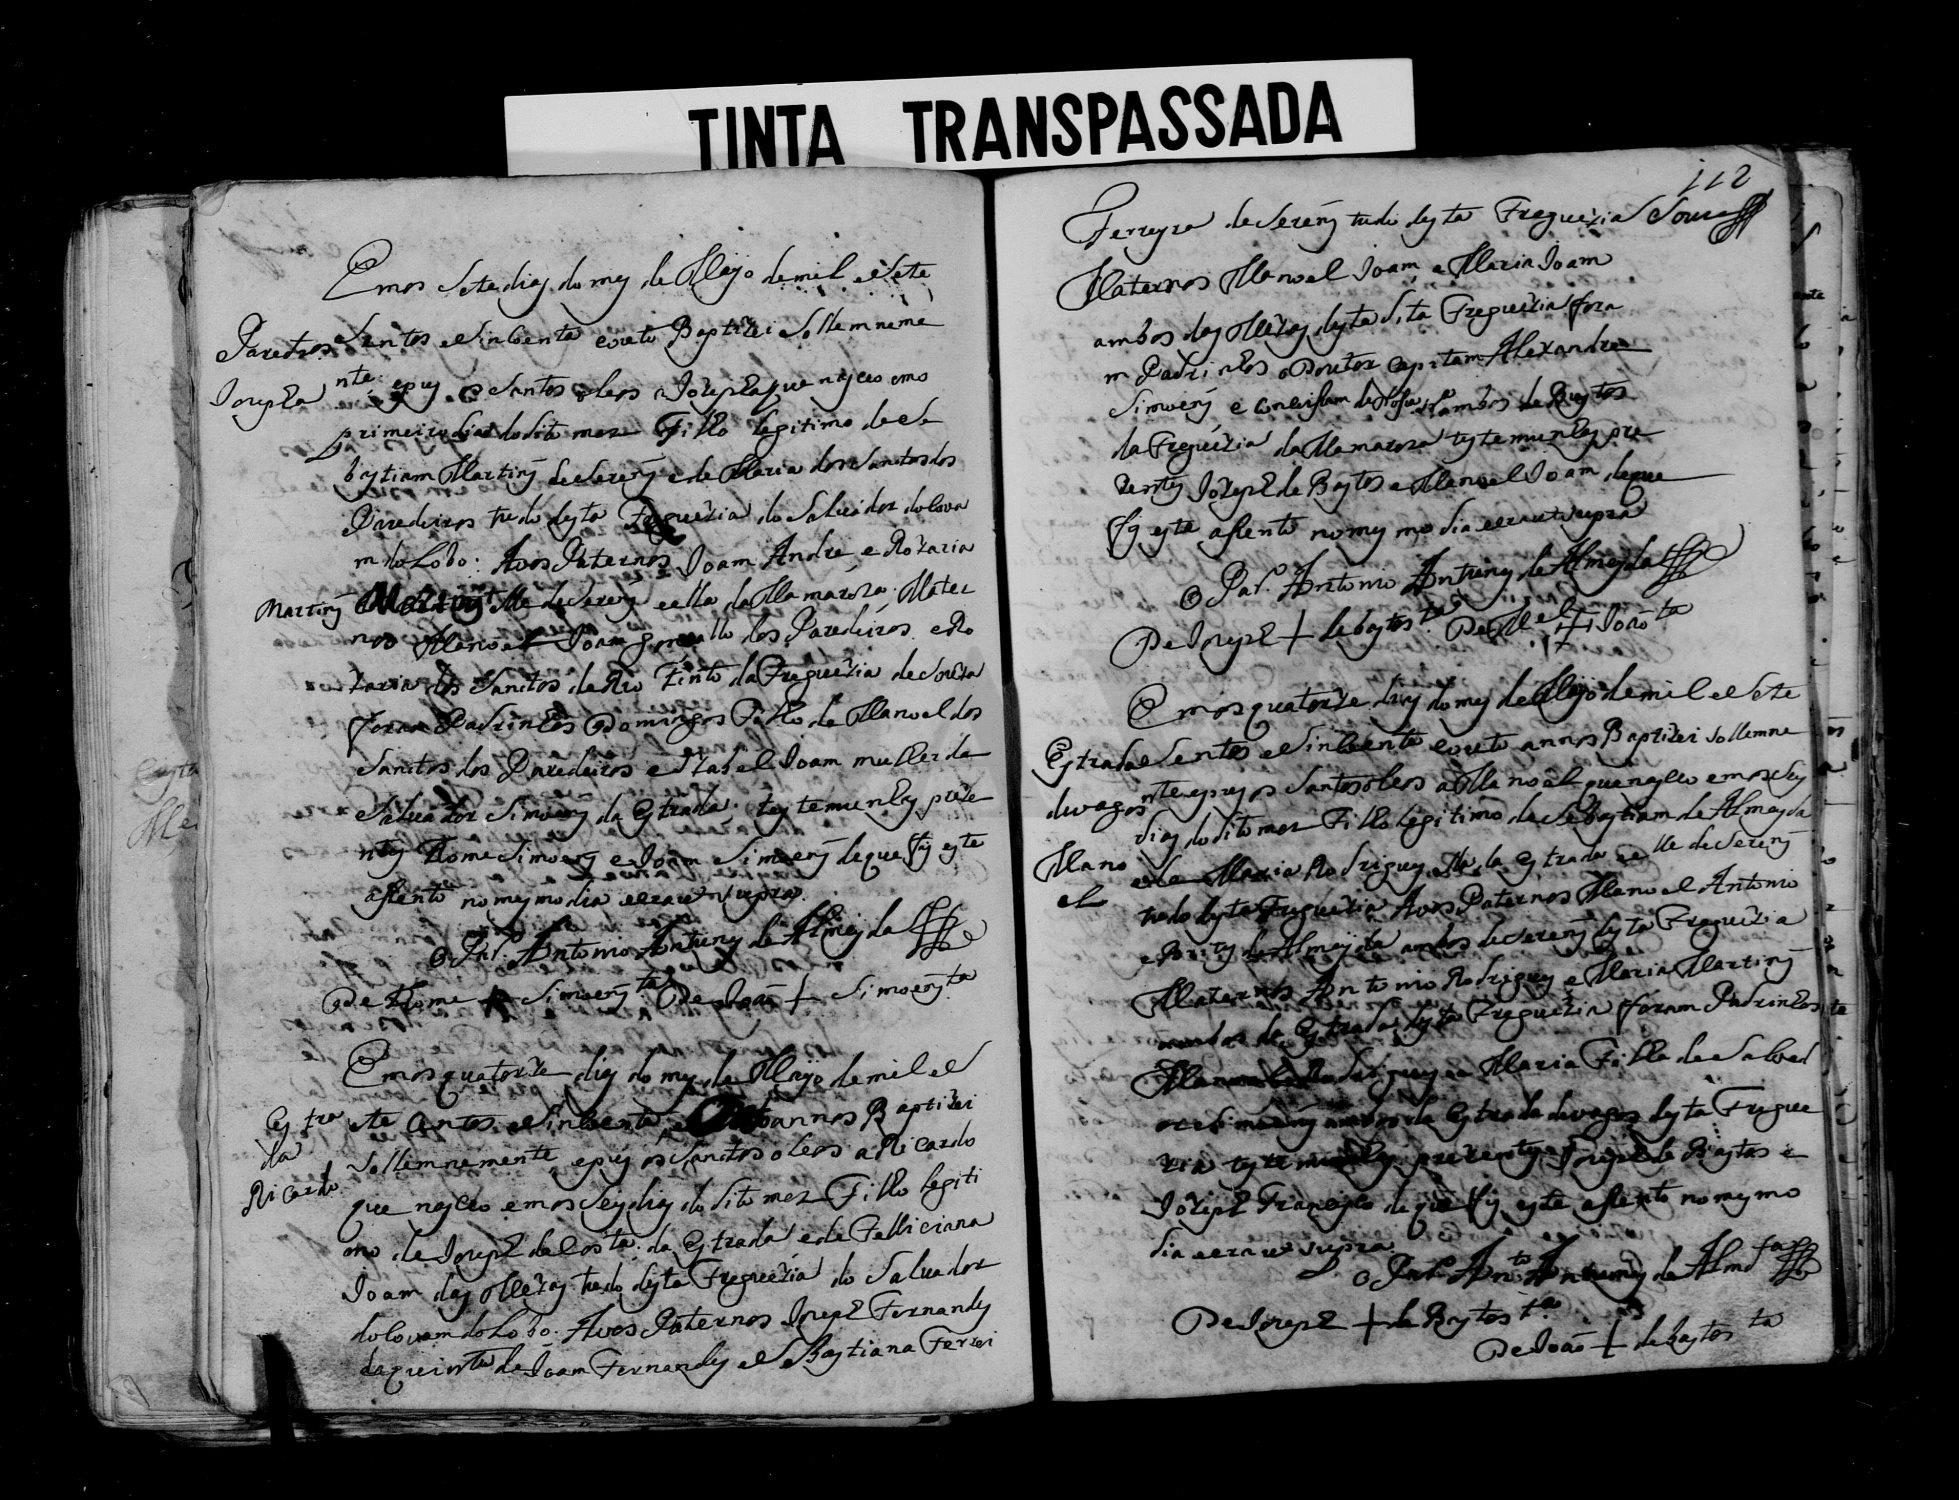 TINTA TRANSPASSADA
Emos Sete dias do mes de Mayo de mil e Sete
Paredros Sentos e Sincoenta e outo Baptizei Sollemneme
Josepha nte e pus os Santos oleos a Josepha que nasceo emo
primeiro dia do dito mes Filho legitimo de Se
bastiam Martins de Serens e de Maria dos Santos dos
Paredeiros tudo desta Freguezia do Salvador do Cova
m do Lobo. Avos Paternos Joam Andre e Rozaria
Martins Martins elle de Serens e ella da Mamaroza. Mater
nos Manoel Joam dos Paredeiros e Ro
zaria dos Santos de Rio Tinto da Freguezia de Soza
foram Padrinhos Domingos Filho de Manoel dos
Santos dos Paredeiros e Izabel Joam mulher de
Salvador Simoens da Estrada, testemunhas preze
ntes Thome Simoens e Joam Simoens de que fis este
asento no mesmo dia era ut supra.
O Par.e Antonio Antunes de Almeyda
De Thome + Simoens ta De Joaõ + Simoens ta
Emos quatorze dias do mes de Mayo de mil e S
Estra ete Centos e Sincoenta e outo annos Baptizei
da Sollemnemente e pus os Santos oleos a Ricardo
Ricardo que nasceo emos Seys dias do dito mes Filho legiti
mo de Joseph de Costa da Estrada e de Felliciana
Joam das Mezas tudo desta Freguezia do Salvador
do Covam do Lobo. Avos Paternos Joseph Fernandes
da quinta de Joam Fernandes e Sebastiana Ferrei
112
Ferreyra de Serens tudo desta Freguezia Souza
Maternos Manoel Joam e Maria Joam
ambos das Mezas desta dita Freguezia fora
m Padrinhos o Doutor Capitam Alexandre
Simoens e ambos de Bustos
da Freguezia da Mamaroza testemunhas pre
zentes Joseph de Bastos e Manoel Joam de que
fis este asento no mesmo dia era ut supra
O Par.e Antonio Antunes de Almeyda
De Joseph + de bastos ta De Mel + Joaõ ta
Emos quatorze dias do mes de Mayo de mil e Sete
Estrada Sentos e Sincoenta e outo annos Baptizei Sollemne
de vagos nte e pus os Santos oleos a Manoel que nasceo emos Seys
dias do dito mes Filho legitimo de Sebastiam de Almeyda
Mano e de Maria Rodrigues ella da Estrada e elle de Serens
el tudo desta Freguezia Avos Paternos Manoel Antonio
e Brites de Almeyda ambos de Serens desta Freguezia
Maternos Antonio Rodrigues e Maria Martins
da Estrada desta Freguezia foram Padrinhos
Manoel Rodrigues e Maria Filha de Salvad
or Simoens ambos da Estrada de vagos desta Fregue
zia testemunhas prezentes Joseph de Bastos e
Joseph Francisco de que fis este asento no mesmo
dia era ut supra
O Par.e An.to Antunes de Almda
De Joseph + de Bastos ta
De Joaõ + de bastos ta